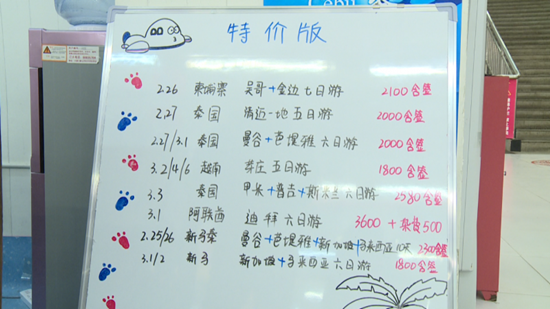 特价版
2.26 柬埔寨 吴哥+金边七日游 2100含签
2.27 泰国 清迈一地五日游 2000含签
2.27/3.1 泰国 曼谷+芭提雅六日游 2000含签
3.2/4/6 越南 芽庄五日游 1800含签
3.3 泰国 甲米+普吉+斯米兰六日游 2580含签
3.1 阿联酋 迪拜六日游 3600+杂费500
2.25/26 新马泰 曼谷+芭提雅+新加坡+马来西亚10天 2300含签
3.1/2 新马 新加坡+马来西亚六日游 1800含签